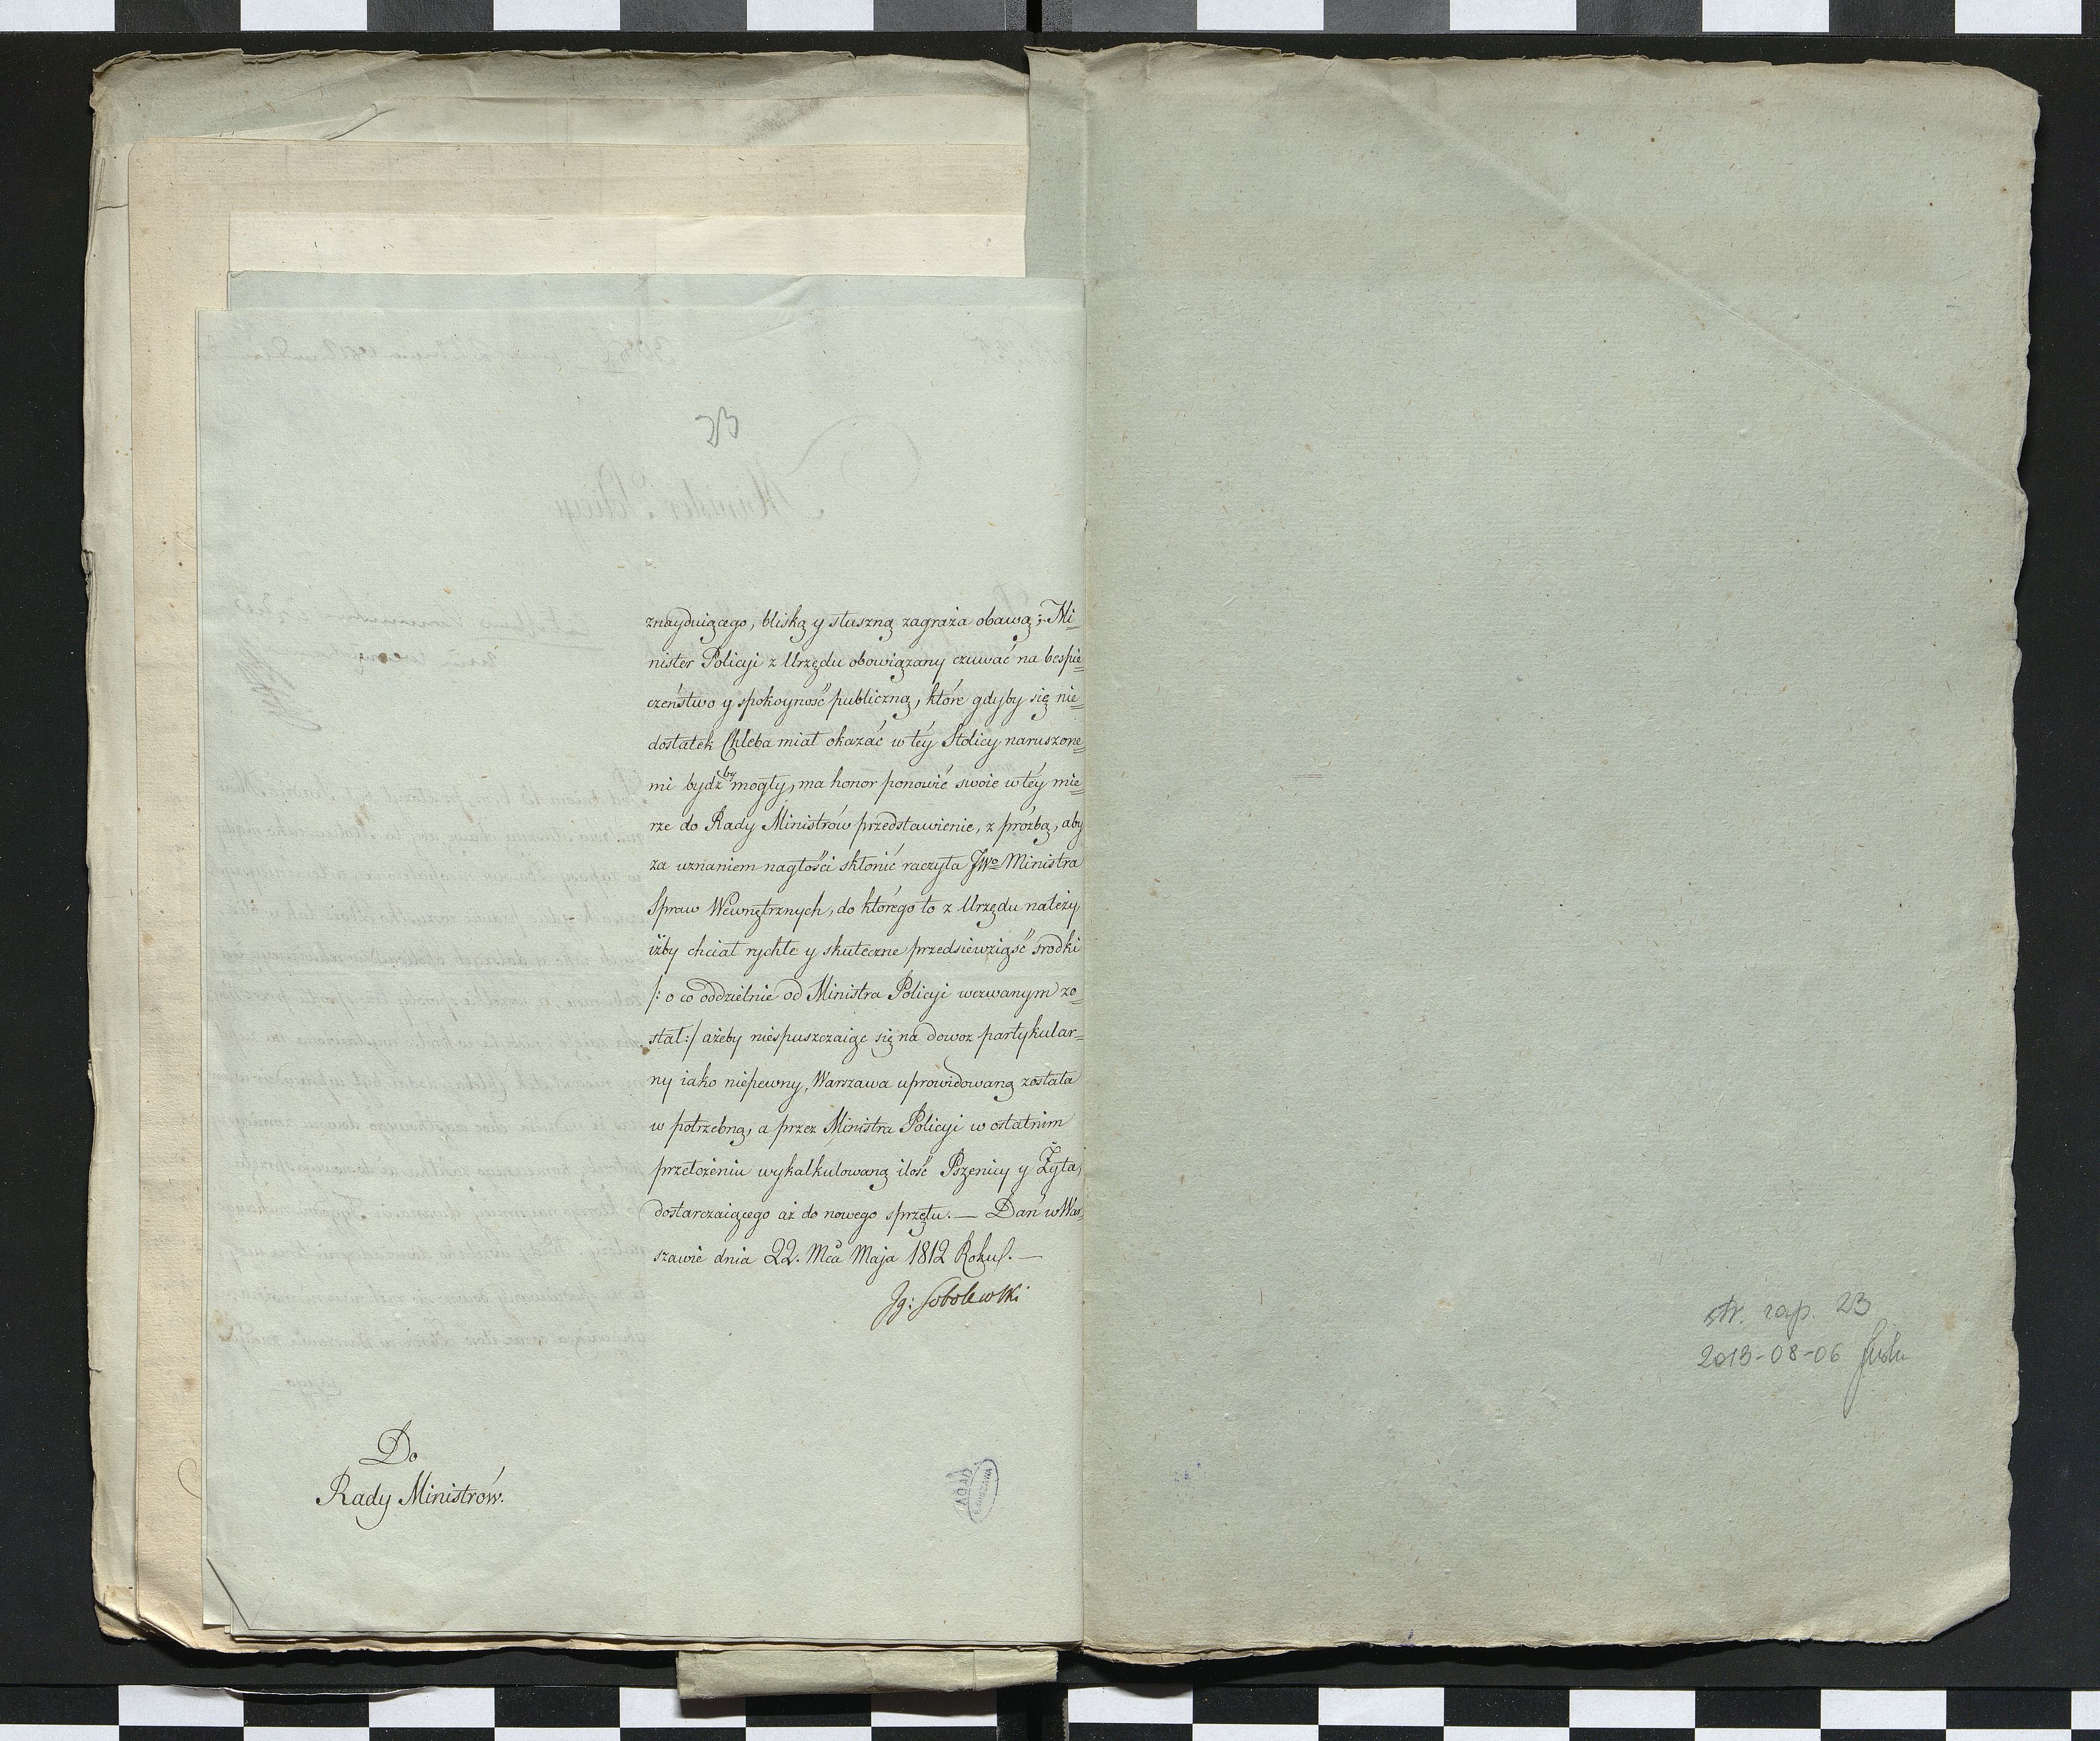 23
znayduiącego, bliską y słuszną zagraża obawą; Mi=
nister Policyi z Urzędu obowiązany czuwać na bespie=
czeństwo y spokoyność publiczną, które gdyby się nie=
dostatek Chleba miał okazać w téy Stolicy naruszone=
mi bydź by mogły, ma honor ponowić swoie w téy mie=
rze do Rady Ministrów przedstawienie, z prózbą, aby
za uznaniem nagłości skłonić raczyła JWo Ministra
Spraw Wewnętrznych, do którego to z Urzędu należy,
iżby chciał rychłe y skuteczne przedsiewziąść srodki
/: o co oddzielnie od Ministra Policyi wezwanym zo=
stał :/ ażeby niespuszczaiąc się na dowoz partykular=
ny iako niepewny, Warszawa uprowidowaną została
w potrzebną, a przez Ministra Policyi w ostatnim
przełożeniu wykalkulowaną ilość Pszenicy y Żyta,
dostarczaiącego aż do nowego sprzętu. — Dań w War=
szawie dnia 22. Mca Maja 1812 Roku. —
Jg: Sobolewski
Do
Rady Ministrów.
AGAD
WARSZAWA
str. zap. 23
2013-08-06